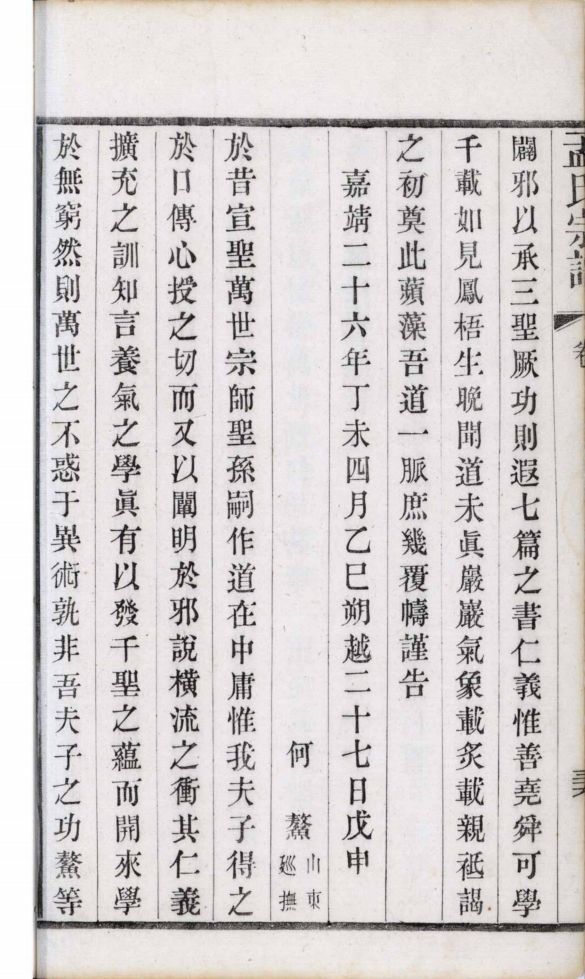 孟氏宗譜 卷
闢邪以承三聖厥功則遐七篇之書仁義惟善堯舜可學
千載如見鳳梧生晚聞道未眞巖巖氣象載炙載親祗謁
之初奠此蘋藻吾道一脈庶幾覆幬謹告
嘉靖二十六年丁未四月乙巳朔越二十七日戊申
何鰲 山東廵撫
於昔宣聖萬世宗師聖孫嗣作道在中庸惟我夫子得之
於口傳心授之切而又以闡明於邪說橫流之衝其仁義
擴充之訓知言養氣之學眞有以發千聖之蘊而開來學
於無窮然則萬世之不惑于異術孰非吾夫子之功鰲等